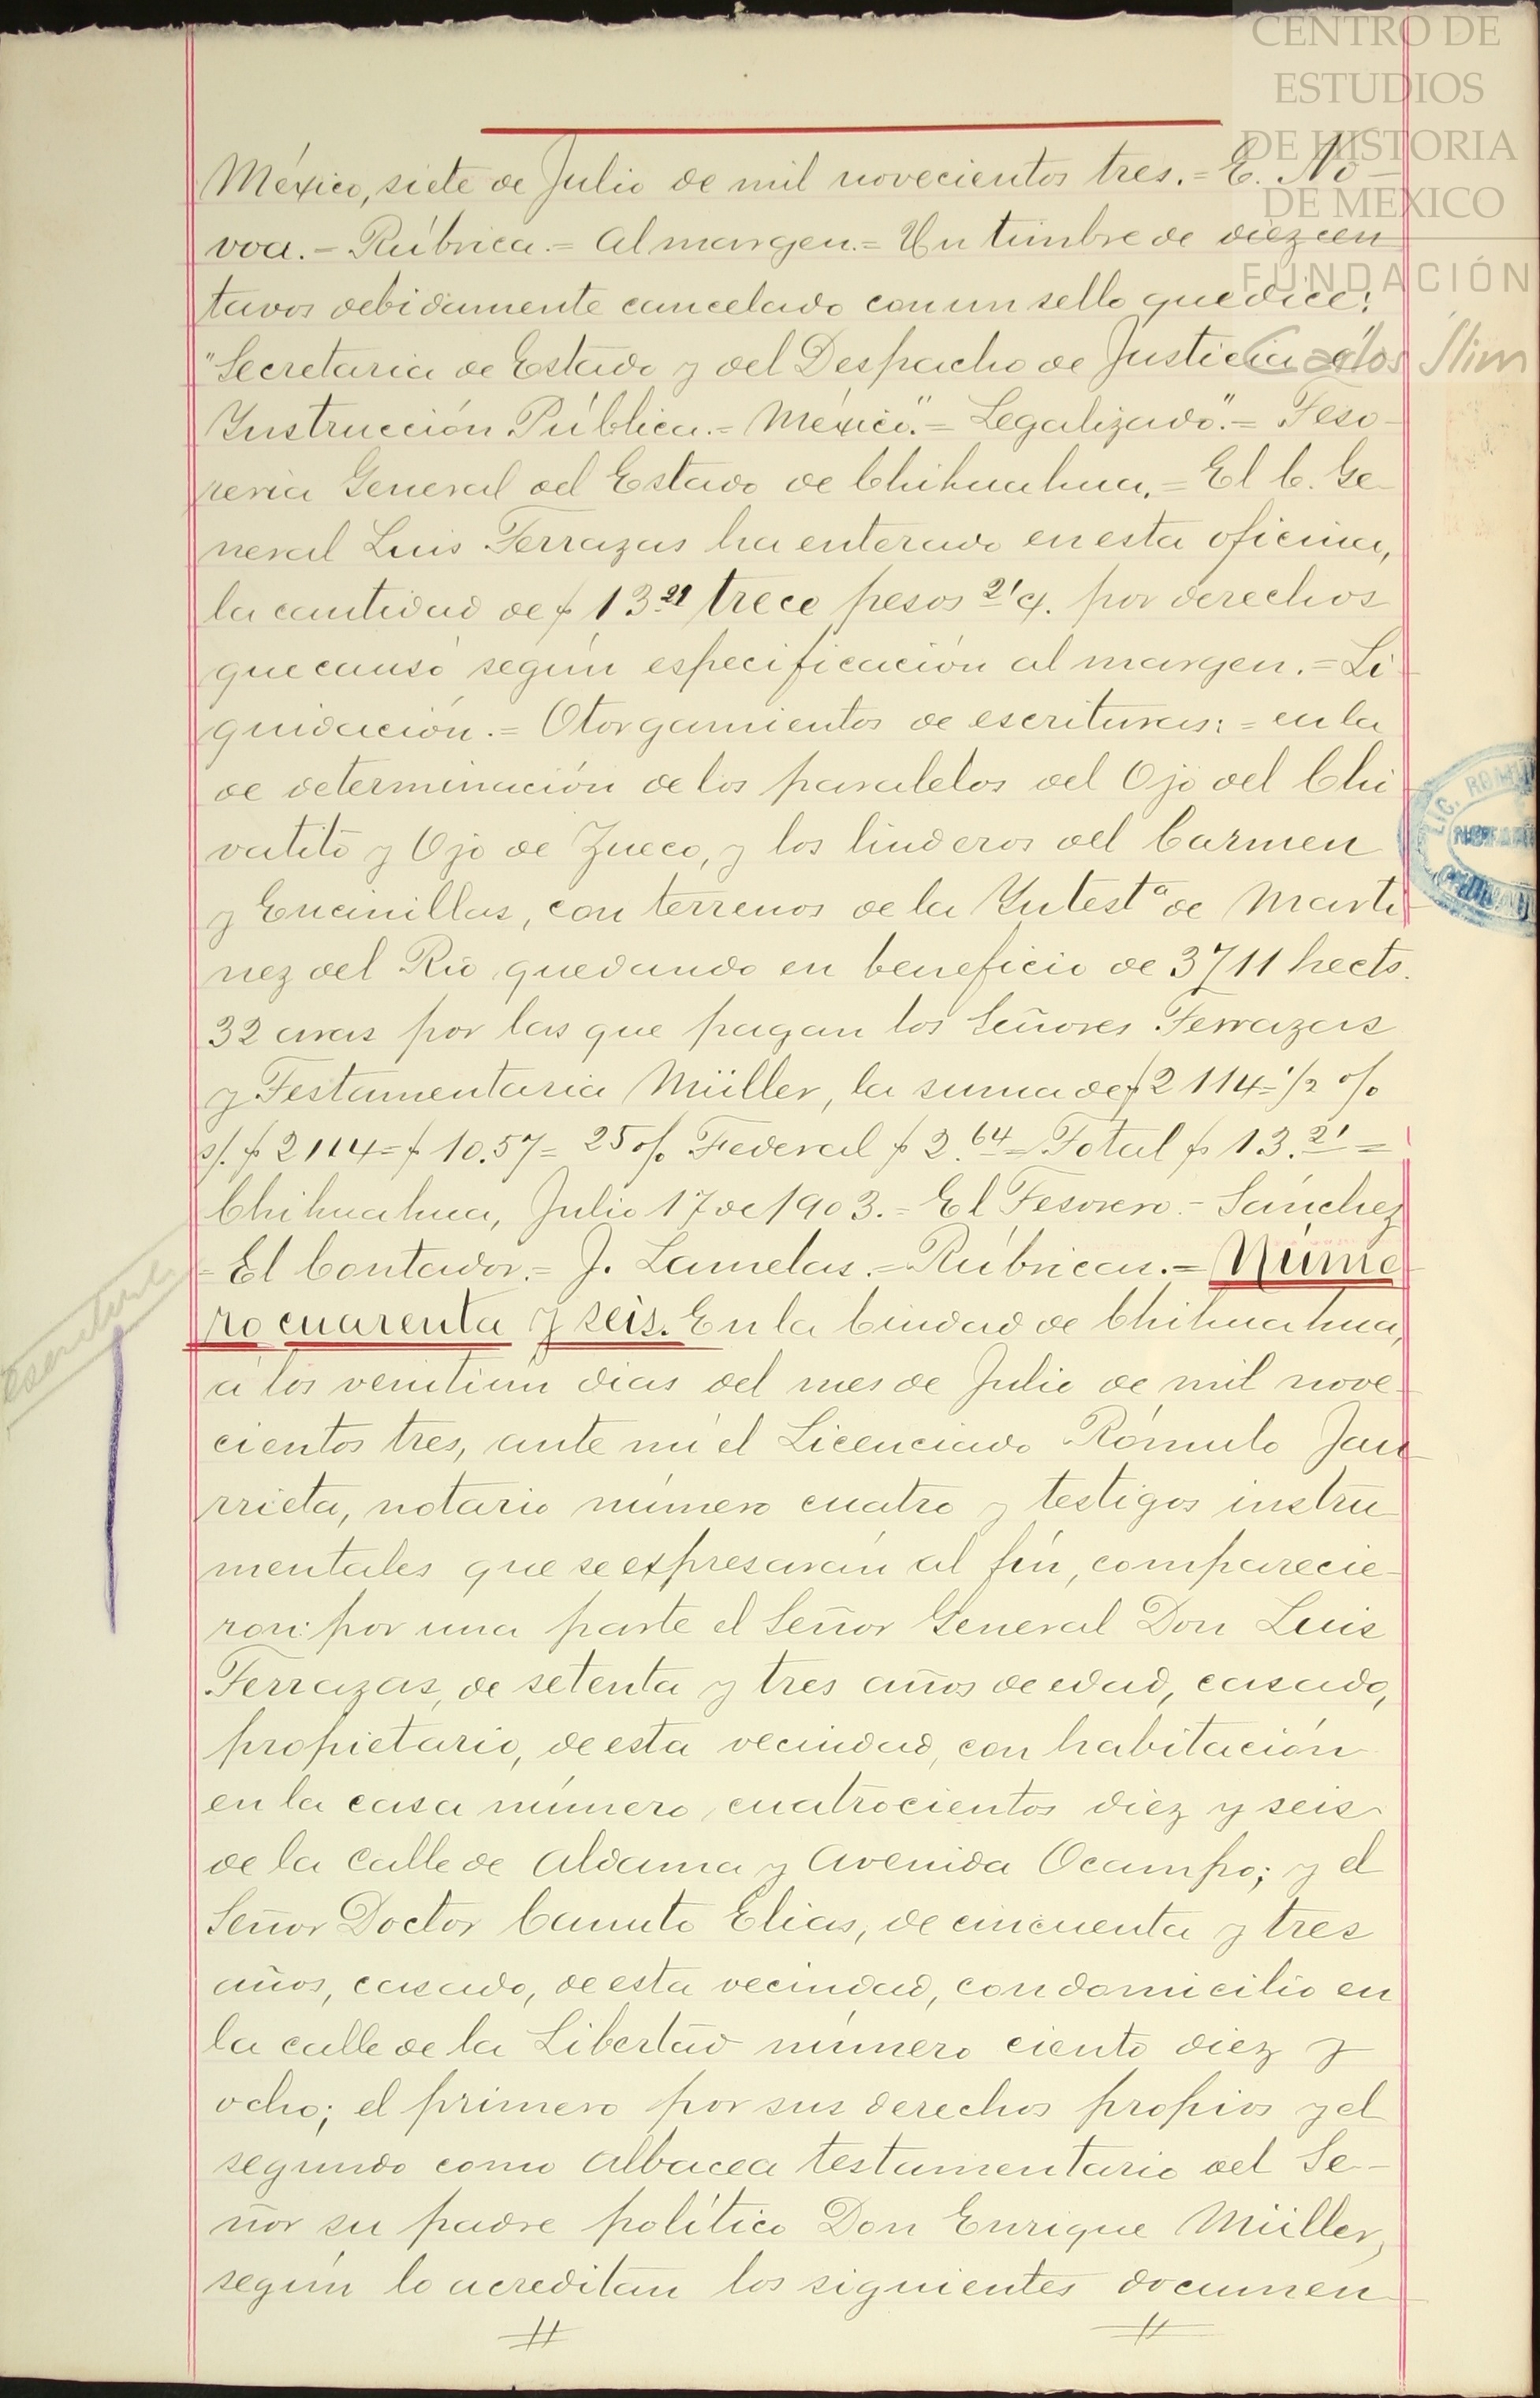 CENTRO DE
ESTUDIOS
DE HISTORIA
DE MEXICO
FUNDACIÓN
Carlos Slim
México, siete de Julio de mil novecientos tres. = E. No-
voa. = Rúbrica. = Al margen. = Un timbre de diez cen
tavos debidamente cancelado con un sello que dice:
"Secretaria de Estado y del Despacho de Justicia é
Instrucción Pública. = México." = Legalizado". = Teso-
reria General del Estado de Chihuahua. = El C. Ge-
neral Luis Terrazas ha enterado en esta oficina,
la cantidad de $ 13.21 trece pesos 21 c. por derechos
que causó según especificación al margen. = Li-
quidación. = Otorgamientos de escrituras: = en la
de determinación de los paralelos del Ojo del Chi
vatito y Ojo de Zueco, y los linderos del Carmen
y Encinillas, con terrenos de la Intestª de Marti-
nez del Rio, quedando en beneficio de 3711 hects.
32 aras por las que pagan los Señores Terrazas
y Testamentaria Müller, la suma de $ 2114 = 1/2 %
s/. $ 2114 = $ 10.57 = 25 % Federal $ 2.64 = Total $ 13.21 =
Chihuahua, Julio 17 de 1903. = El Tesorero. - Sánchez
- El Contador. = J. Lamelas. = Rúbricas. = Núme
ro cuarenta y seis. En la Ciudad de Chihuahua,
á los veintiun dias del mes de Julio de mil nove-
cientos tres, ante mi el Licenciado Rómulo Jau
rrieta, notario número cuatro y testigos instru-
mentales que se expresarán al fin, comparecie-
ron: por una parte el Señor General Don Luis
Terrazas, de setenta y tres años de edad, casado,
propietario, de esta vecindad, con habitación
en la casa número cuatrocientos diez y seis
de la calle de Aldama y Avenida Ocampo; y el
Señor Doctor Canuto Elias, de cincuenta y tres
años, casado, de esta vecindad, con domicilio en
la calle de la Libertad número ciento diez y
ocho; el primero por sus derechos propios y el
segundo como albacea testamentario del Se-
ñor su padre político Don Enrique Müller,
según lo acreditan los siguientes documen
LIC.